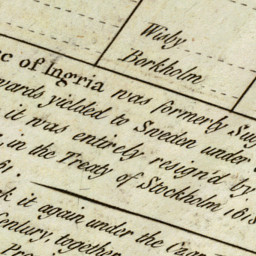 Wisby
Borkholm
e of Ingria was formerly Su
wards yielded to Sweden under
it was entirely resign'd by
in the Treaty of Stockholm 1618
61.
k it again under the Czar
Century, together
Pro